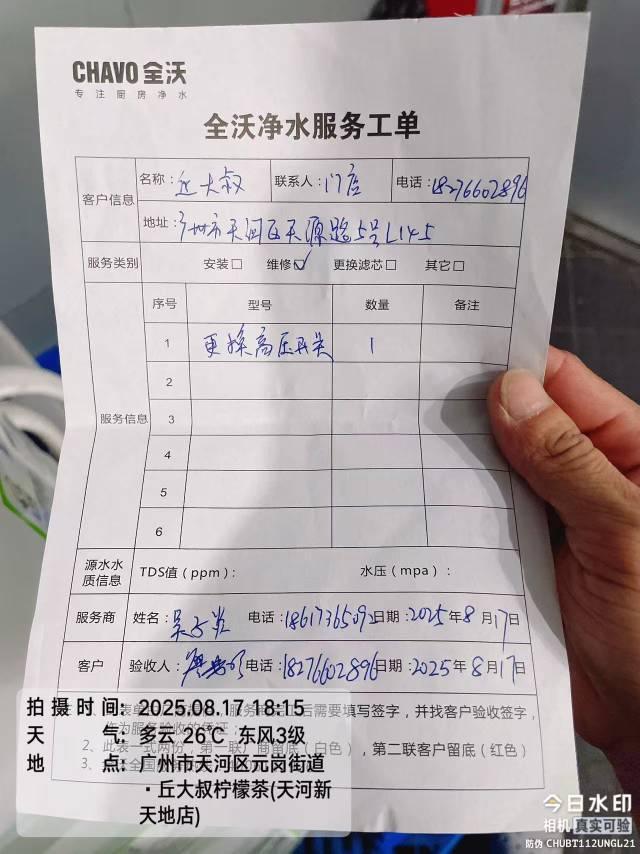 CHAVO 全沃
专注厨房净水
全沃净水服务工单
客户信息 名称: 丘大叔 联系人: 门店 电话: 18276602896
地址: 广州市天河区天源路5号L145
服务类别 安装□ 维修☑ 更换滤芯□ 其它□
服务信息 序号 型号 数量 备注
1 更换高压开关 1
2
3
4
5
6
源水水质信息 TDS值（ppm）: 水压（mpa）:
服务商 姓名: 电话: 18617365092 日期: 2025年8月17日
客户 验收人: 电话: 18276602896 日期: 2025年8月17日
服务商完工后需要填写签字，并找客户验收签字，
作为服务验收的凭证；
2、此表一式两份，第一联厂商留底（白色），第二联客户留底（红色）
拍摄时间: 2025.08.17 18:15
天气: 多云 26℃ 东风3级
地点: 广州市天河区元岗街道
·丘大叔柠檬茶(天河新
天地店)
今日水印
相机 真实可验
防伪 CHUBT112UNGL21